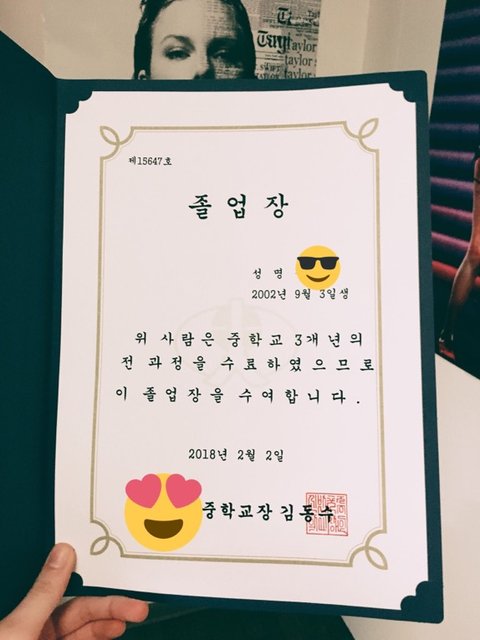 taylor
taylor s
taylor
제15647호
졸업장
성 명
2002년 9월 3일생
위 사람은 중학교 3개년의
전 과정을 수료하였으므로
이 졸업장을 수여합니다.
2018년 2월 2일
중학교장 김동수